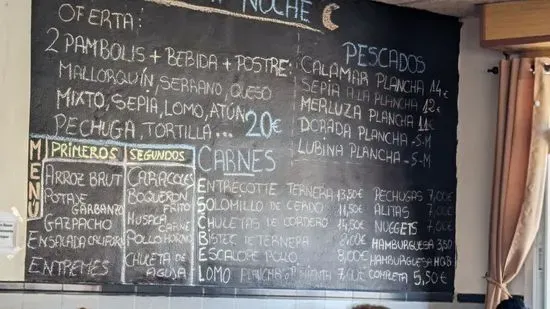 NOCHE
OFERTA:
2 PAMBOLIS + BEBIDA + POSTRE:
MALLORQUÍN, SERRANO, QUESO
MIXTO, SEPIA, LOMO, ATÚN
PECHUGA, TORTILLA... 20€
PESCADOS
CALAMAR PLANCHA 14€
SEPIA A LA PLANCHA 12€
MERLUZA PLANCHA 11€
DORADA PLANCHA -S-M
LUBINA PLANCHA -S-M
MENÚ
PRIMEROS
ARROZ BRUT
POTAJE
GARBANZO
GAZPACHO
ENSALADA
ENTREMES
SEGUNDOS
CARACOLES
BOQUERON
FRITO
CARNE
POLLO HORNO
CHULETA DE
AGUJA
CARNES
ENTRECOTTE TERNERA 13,50€
SOLOMILLO DE CERDO 11,50€
CHULETAS DE CORDERO 14,50€
BISTEC DE TERNERA
ESCALOPE POLLO 8,00€
LOMO PLANCHA O PIMIENTA 7,00€
PECHUGAS 7,00€
ALITAS 7,00€
NUGGETS 7,00€
HAMBURGUESA 3,50
HAMBURGUESA
COMPLETA 5,50€